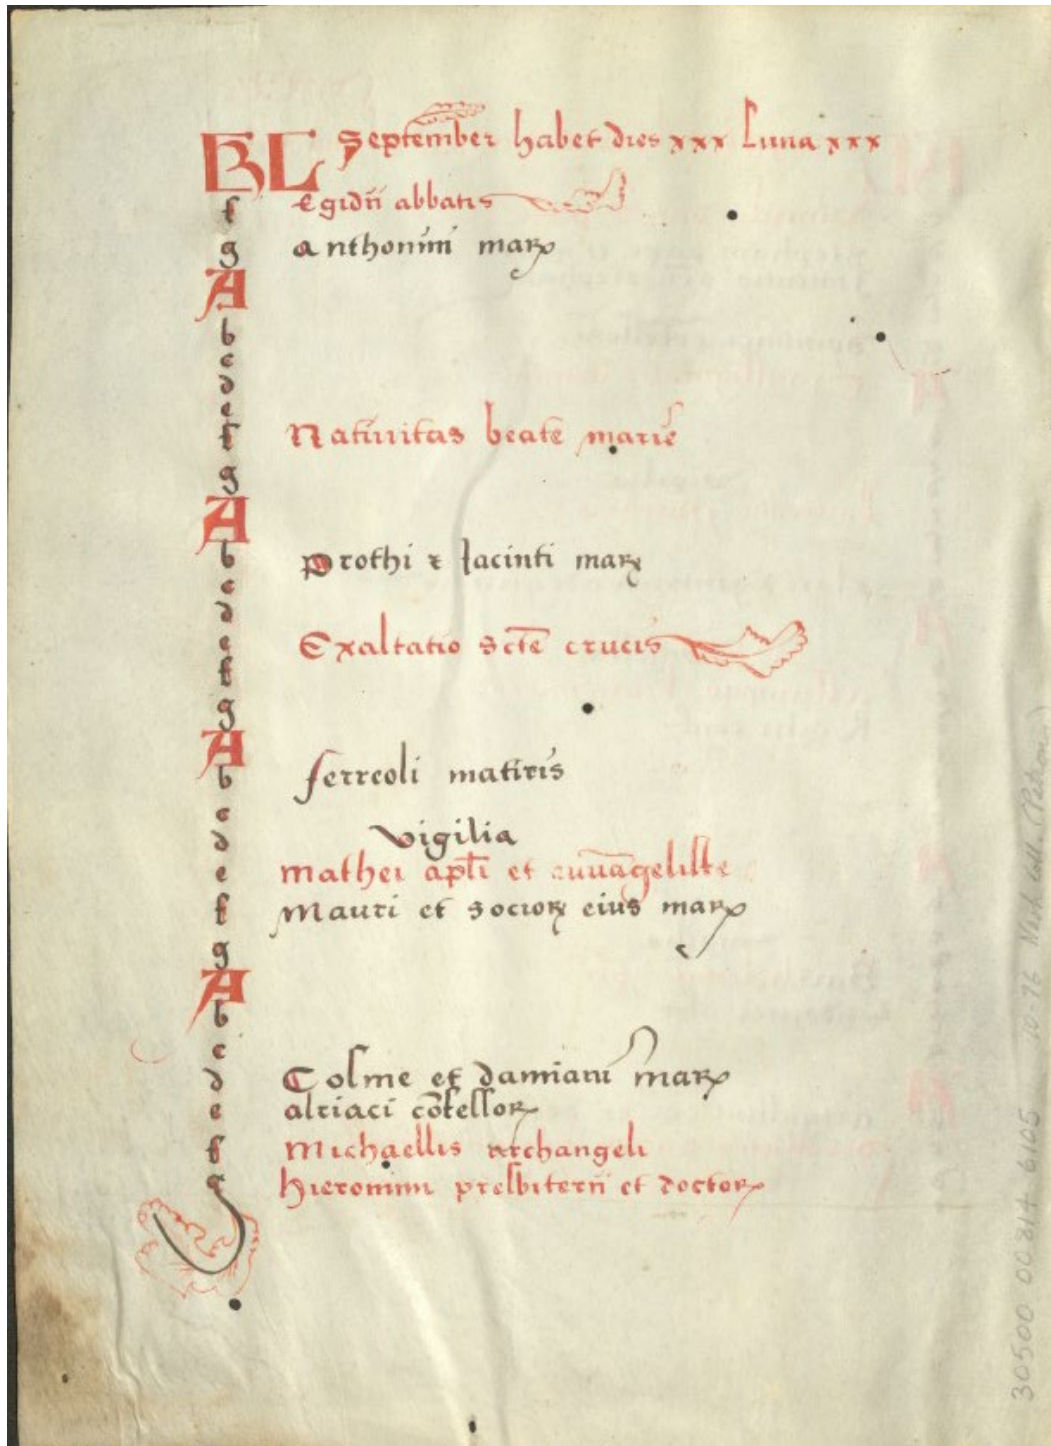 KL September habet dies xxx Luna xxx
f Egidii abbatis
g anthonini mar
A
b
c
d
e
f Natiuitas beate marie
g
A
b prothi ⁊ Jacinti mar
c
d
e Exaltatio scte crucis
f
g
A
b ferreoli matiris
c
d vigilia
e mathei apli et euuageliste
f Mauri et socior eius mar
g
A
b
c
d Cosme et damiani mar
e confessor
f Michaellis archangeli
g hieronimi presbiterii et doctor
30500 00814 6105 10-76 Nash coll.